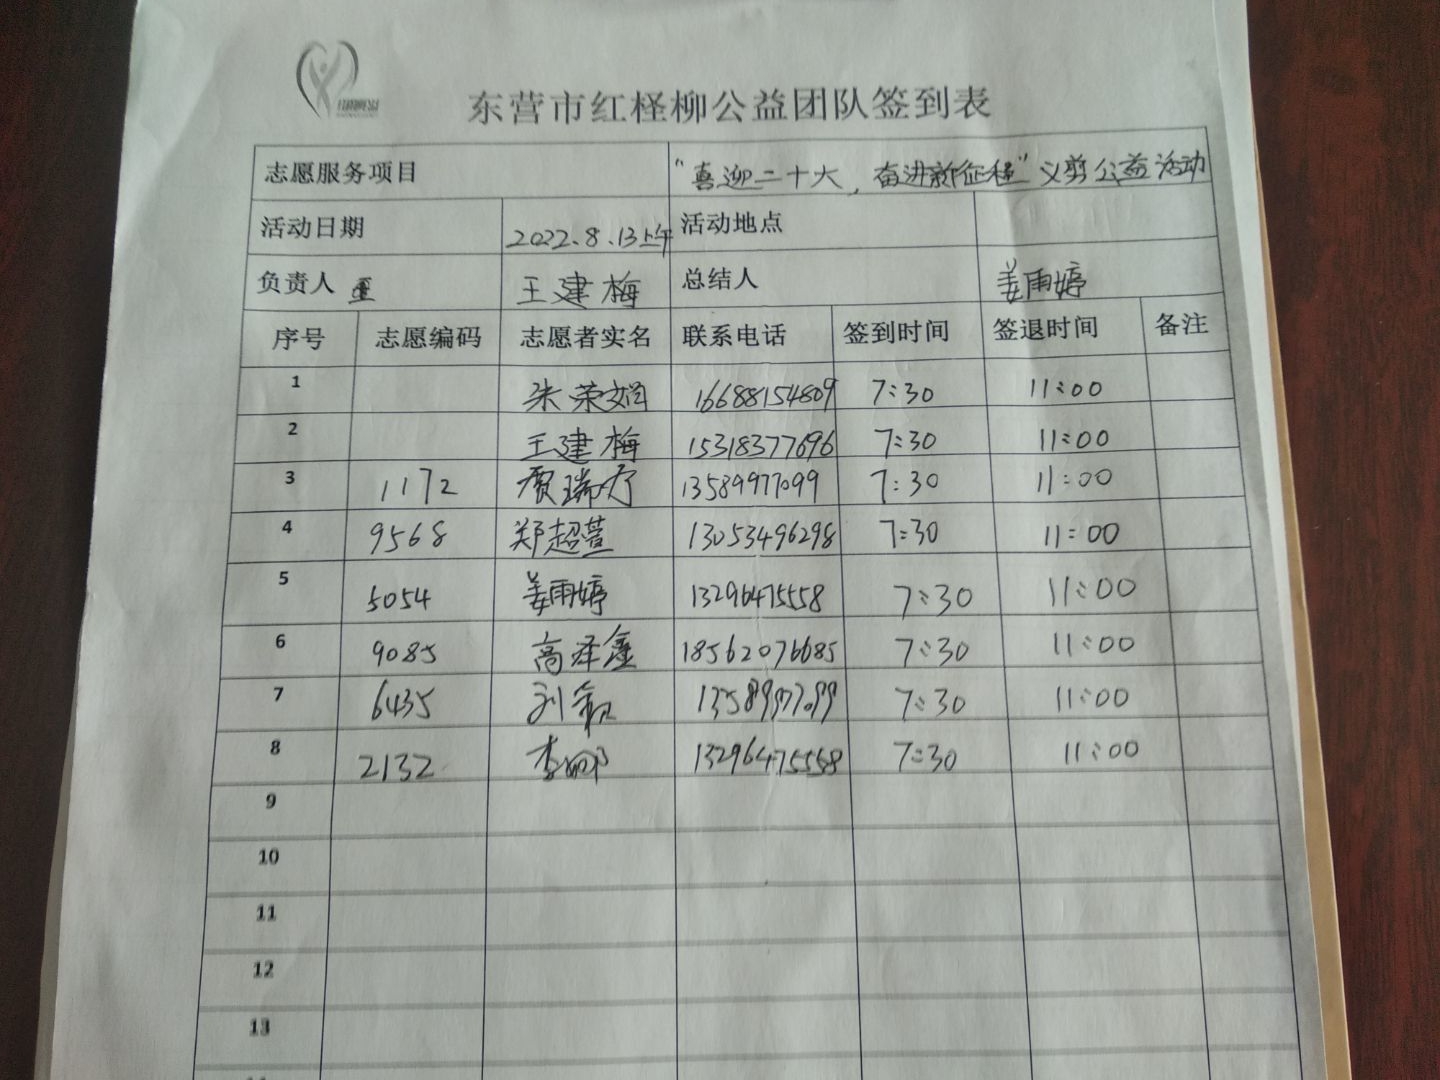 东营市红柽柳公益团队签到表
志愿服务项目 "喜迎二十大，奋进新征程"义剪公益活动
活动日期 2022.8.13上午 活动地点
负责人 王建梅 总结人 姜雨婷
序号 志愿编码 志愿者实名 联系电话 签到时间 签退时间 备注
1 朱荣娟 16688154809 7:30 11:00
2 王建梅 15318377696 7:30 11:00
3 1172 贾瑞 13589977099 7:30 11:00
4 9568 郑超萱 13053496298 7:30 11:00
5 5054 姜雨婷 13296475558 7:30 11:00
6 9085 高泽鑫 18562076685 7:30 11:00
7 6435 刘 13589977099 7:30 11:00
8 2132 李娜 13296475558 7:30 11:00
9
10
11
12
13